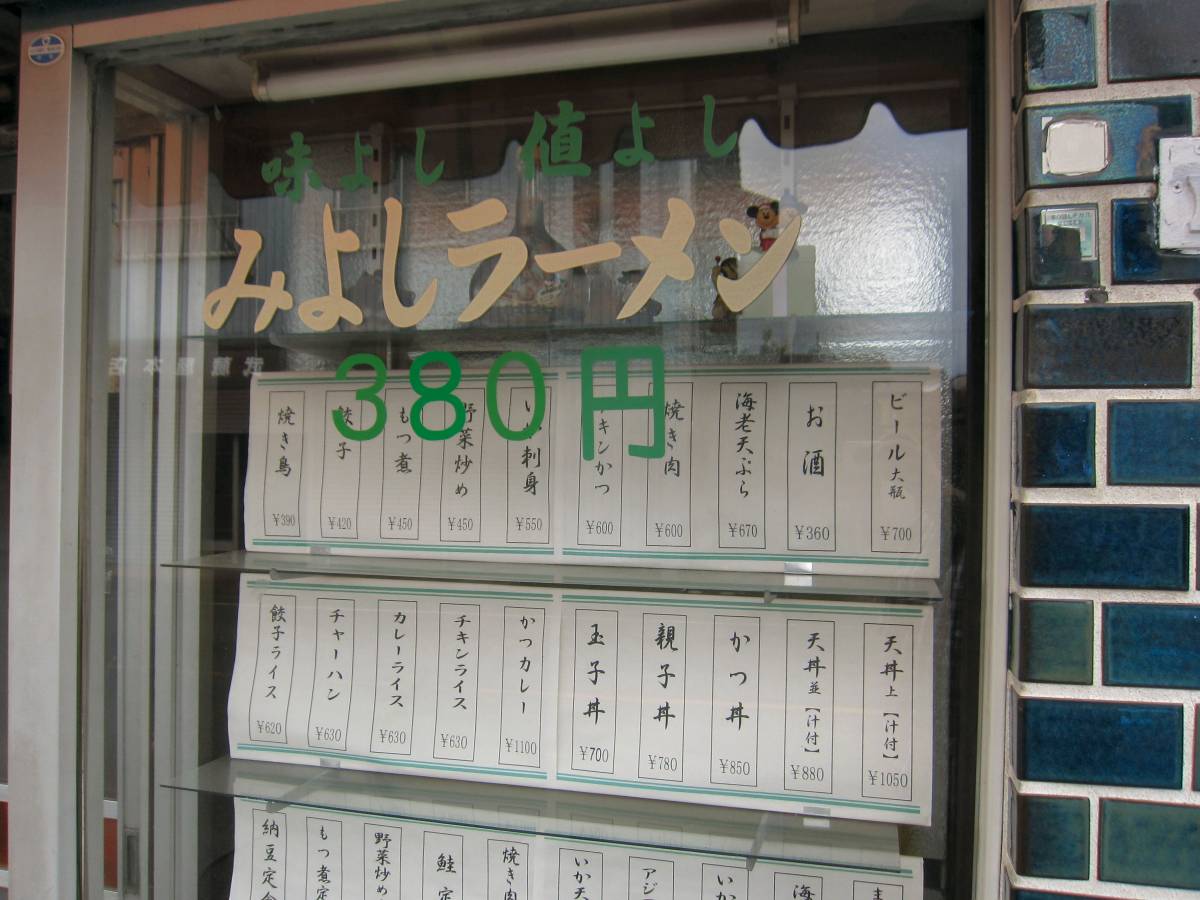 味よし 値よし
みよしラーメン
380円
ビール大瓶 ¥700
お酒 ¥360
海老天ぷら ¥670
焼き肉 ¥600
チキンかつ ¥600
いか刺身 ¥550
野菜炒め ¥450
もつ煮 ¥450
餃子 ¥420
焼き鳥 ¥390
天丼上【汁付】 ¥1050
天丼並【汁付】 ¥880
かつ丼 ¥850
親子丼 ¥780
玉子丼 ¥700
かつカレー ¥1100
チキンライス ¥630
カレーライス ¥630
チャーハン ¥630
餃子ライス ¥620
海
いか
アジ
いか天
焼き肉
鮭定
野菜炒め
もつ煮定
納豆定食